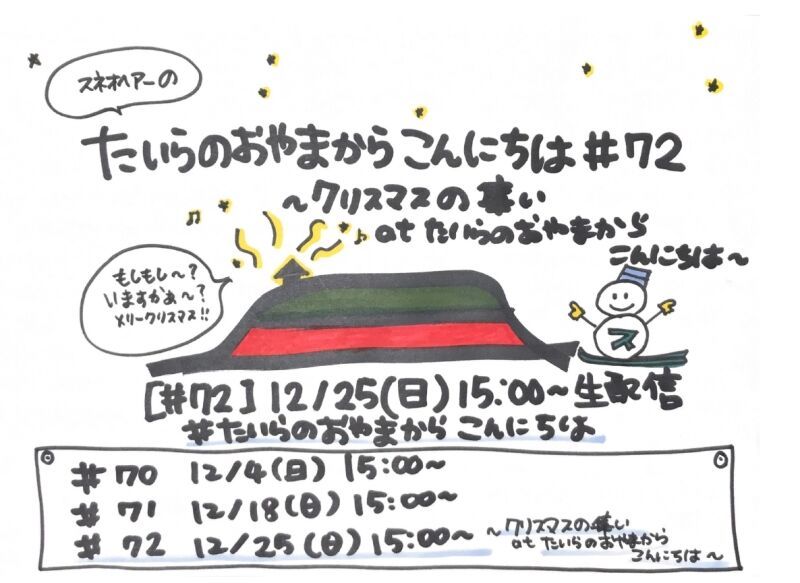 スネオヘアーの
たいらのおやまから こんにちは #72
~クリスマスの集い
at たいらのおやまから
こんにちは~
もしもし~?
いますかぁ~?
メリークリスマス!!
ス
[#72] 12/25(日) 15:00~生配信
#たいらのおやまから こんにちは
#70 12/4(日) 15:00~
#71 12/18(日) 15:00~
#72 12/25(日) 15:00~
~クリスマスの集い
at たいらのおやまから
こんにちは~